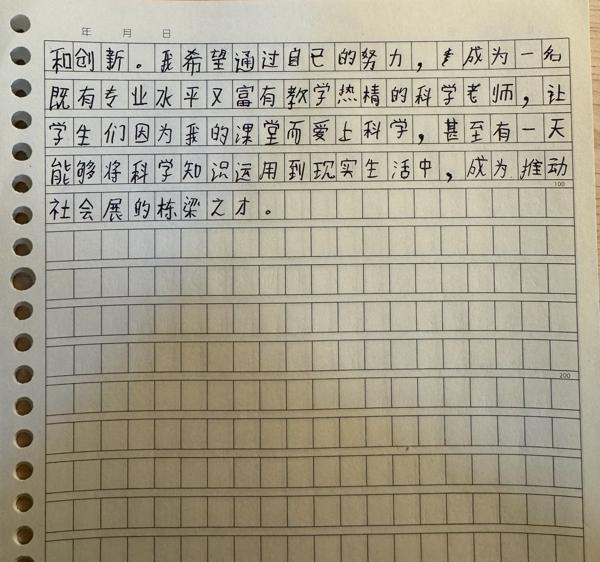 年 月 日
和创新。我希望通过自己的努力，成为一名
既有专业水平又富有教学热情的科学老师，让
学生们因为我的课堂而爱上科学，甚至有一天
能够将科学知识运用到现实生活中，成为推动
100
社会展的栋梁之才。
200